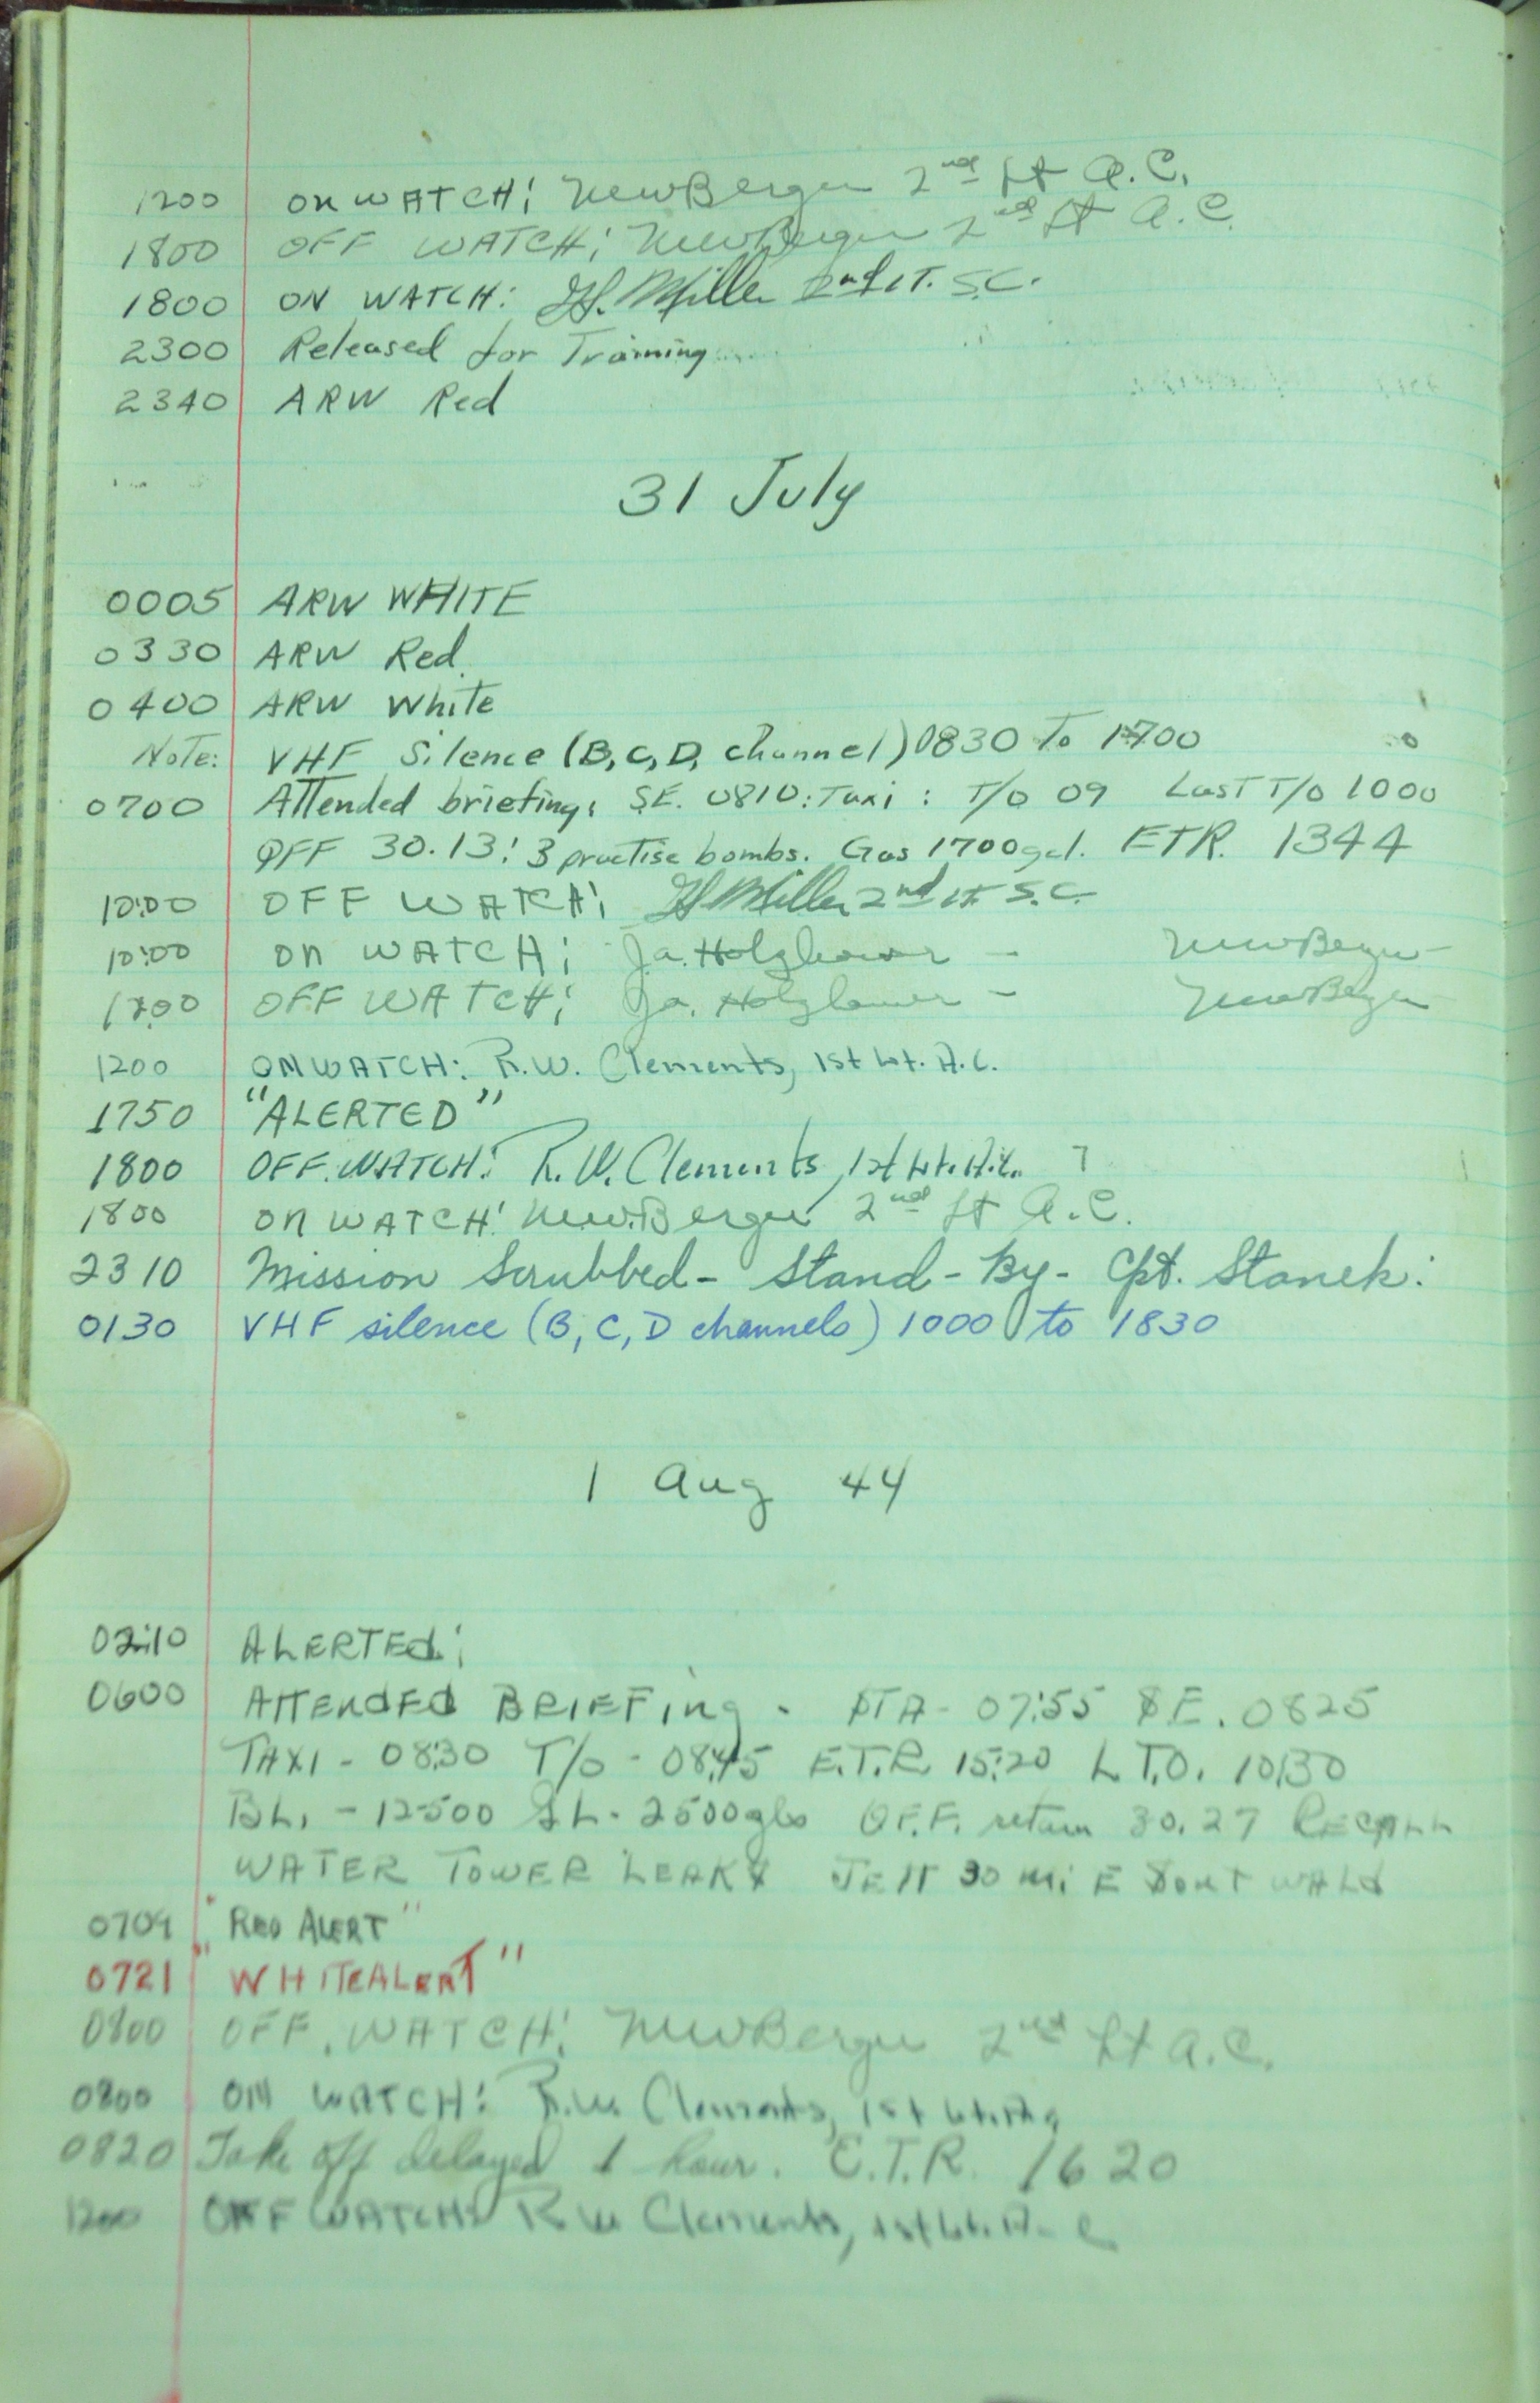 1200 ON WATCH: NewBerger 2nd Lt A.C.
1800 OFF WATCH: NewBerger 2nd Lt A.C.
1800 ON WATCH: Miller 2nd LT. S.C.
2300 Released for Training
2340 ARW Red
31 July
0005 ARW WHITE
0330 ARW Red
0400 ARW White
Note: VHF Silence (B, C, D, channel) 0830 To 1700
0700 Attended briefing: S.E. 0810: Taxi : T/O 09 Last T/O 1000
QFF 30.13: 3 practise bombs. Gas 1700 gal. ETR. 1344
10:00 OFF WATCH: Miller 2nd Lt S.C.
10:00 ON WATCH: Ja. - NewBerger
OFF WATCH: Ja. - NewBerger
1200 ON WATCH: R.W. Clements, 1st Lt. A.C.
1750 "ALERTED"
1800 OFF. WATCH: R.W. Clements, 1st Lt. A.C.
1800 ON WATCH: NewBerger 2nd Lt A.C.
2310 Mission Scrubbed - Stand-By - Cpt. Stanek:
0130 VHF silence (B, C, D channels) 1000 to 1830
1 Aug 44
0210 ALERTED:
0600 ATTENDED BRIEFing - 07:55 S.E. 0825
TAXI - 08:30 T/O - 08:45 E.T.R. 15:20 L T.O. 10:30
BL. - 12500 GL - 2500 gls Q.F.F. return 30.27 RECALL
WATER TOWER LEAKS 30 Mi E
0709 "RED ALERT"
0721 "WHITE ALERT"
0800 OFF. WATCH: NewBerger 2nd Lt A.C.
0800 ON WATCH: R.W. Clements, 1st Lt. A.C.
0820 Take off delayed 1 hour. E.T.R. 1620
1200 OFF WATCH: R W Clements, 1st Lt. A.C